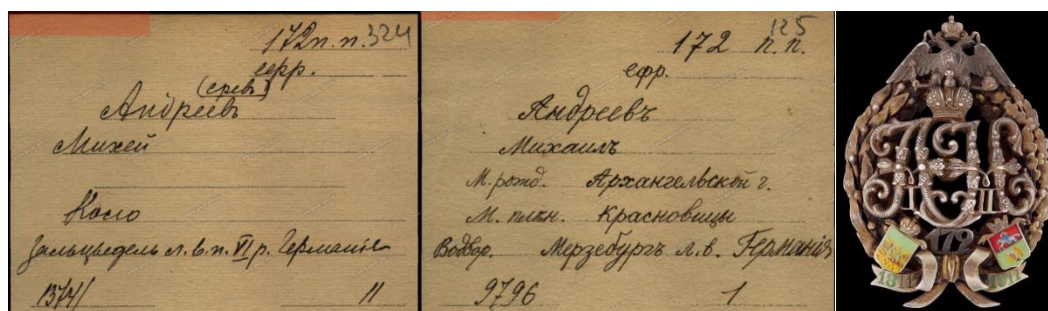 172 п.п. 324
ефр.
Андреевъ
Михей
Зальцведель л.в.п. VI р. Германiя
11
172 п.п.
125
ефр.
Андреевъ
Михаилъ
М. рожд. Архангельской г.
М. плѣн. Красновицы
Водвор. Мерзебургъ л.в. Германiя
9796 1
179
1811 1911